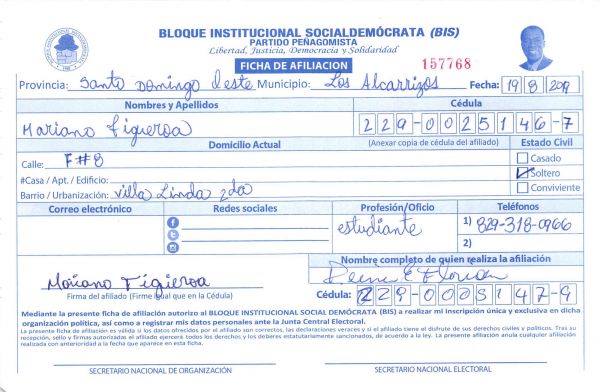 BLOQUE INSTITUCIONAL SOCIALDEMÓCRATA (BIS)
PARTIDO PEÑAGOMISTA
Libertad, Justicia, Democracia y Solidaridad
FICHA DE AFILIACION
157768
Provincia: Santo Domingo Oeste Municipio: Los Alcarrizos Fecha: 19 8 2019
Nombres y Apellidos Cédula
Mariano Figueroa 229-0025146-7
Domicilio Actual (Anexar copia de cédula del afiliado) Estado Civil
Calle: F#8 Casado
#Casa / Apt. / Edificio: Soltero
Barrio / Urbanización: Villa Linda 2da Conviviente
Correo electrónico Redes sociales Profesión/Oficio Teléfonos
estudiante 1) 829-318-0966
2)
Nombre completo de quien realiza la afiliación
Mariano Figueroa
Firma del afiliado (Firme igual que en la Cédula) Cédula: 229-0005147-9
Mediante la presente ficha de afiliación autorizo al BLOQUE INSTITUCIONAL SOCIAL DEMÓCRATA (BIS) a realizar mi inscripción única y exclusiva en dicha
organización política, así como a registrar mis datos personales ante la Junta Central Electoral.
La presente ficha de afiliación es válida si los datos ofrecidos por el afiliado son correctos, las declaraciones veraces y si el afiliado tiene el disfrute de sus derechos civiles y políticos. Tras su
recepción, sello y firmas autorizadas el afiliado ejercerá todos los derechos y los deberes estatutariamente sancionados, de acuerdo a la ley. La presente afiliación anula cualquier afiliación
realizada con anterioridad a la fecha que aparece en esta ficha.
SECRETARIO NACIONAL DE ORGANIZACIÓN SECRETARIO NACIONAL ELECTORAL